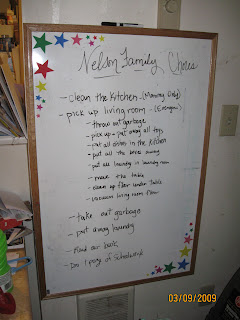 Nelson Family Chores
- Clean the Kitchen - (Mommy Only)
- pick up living room - (Everyone)
- throw out garbage
- pick up & put away all toys
- put all dishes in the kitchen
- put all the books away
- put all laundry in laundry room
- make the table
- clean up floor under table
- vacuum living room floor
- take out garbage
- put away laundry
- Read one book
- Do 1 page of Schoolwork
03/09/2009